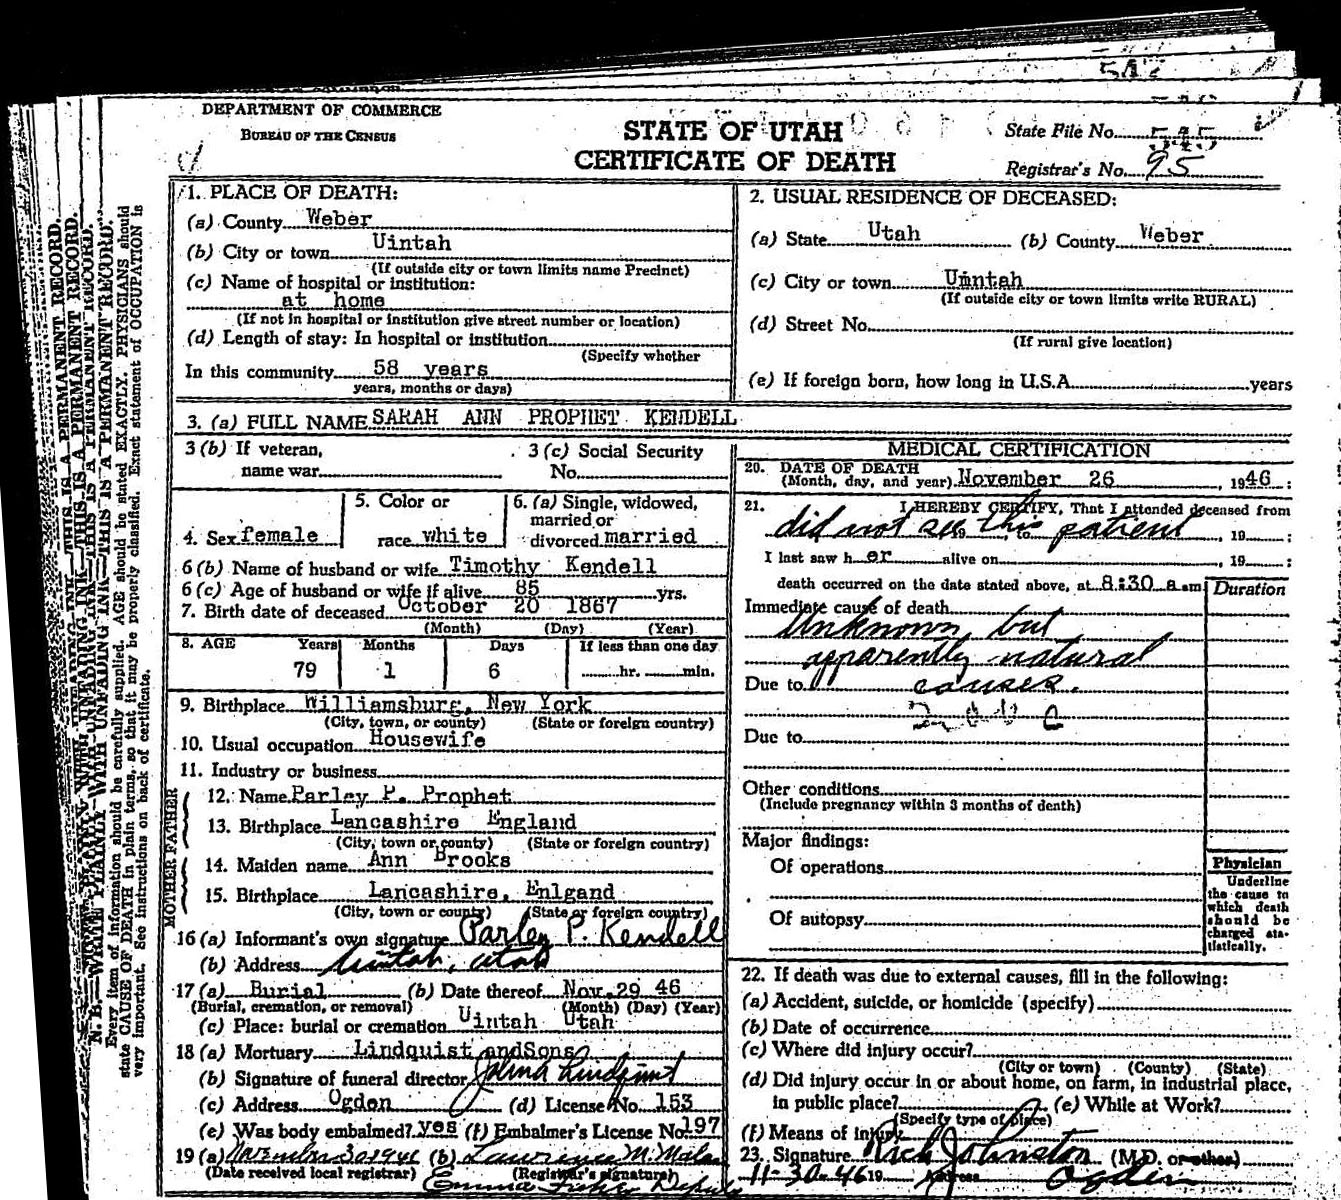 DEPARTMENT OF COMMERCE
BUREAU OF THE CENSUS
STATE OF UTAH
CERTIFICATE OF DEATH
State File No. 545
Registrar's No. 95
1. PLACE OF DEATH:
(a) County Weber
(b) City or town Uintah
(If outside city or town limits name Precinct)
(c) Name of hospital or institution:
at home
(If not in hospital or institution give street number or location)
(d) Length of stay: In hospital or institution
(Specify whether
In this community 58 years
years, months or days)
2. USUAL RESIDENCE OF DECEASED:
(a) State Utah (b) County Weber
(c) City or town Umntah
(If outside city or town limits write RURAL)
(d) Street No.
(If rural give location)
(e) If foreign born, how long in U.S.A. years
3. (a) FULL NAME SARAH ANN PROPHET KENDELL
3 (b) If veteran,
name war
3 (c) Social Security
No.
4. Sex female
5. Color or
race white
6. (a) Single, widowed,
married or
divorced married
6 (b) Name of husband or wife Timothy Kendell
6 (c) Age of husband or wife if alive 85 yrs.
7. Birth date of deceased October 20 1867
(Month) (Day) (Year)
8. AGE Years Months Days If less than one day
79 1 6 hr. min.
9. Birthplace Williamsburg, New York
(City, town, or county) (State or foreign country)
10. Usual occupation Housewife
11. Industry or business
FATHER
12. Name Parley P. Prophet
13. Birthplace Lancashire England
(City, town or county) (State or foreign country)
MOTHER
14. Maiden name Ann Brooks
15. Birthplace Lancashire, Enlgand
(City, town or county) (State or foreign country)
16 (a) Informant's own signature Parley P. Kendell
(b) Address Uintah, Utah
17 (a) Burial (b) Date thereof Nov. 29 46
(Burial, cremation, or removal) (Month) (Day) (Year)
(c) Place: burial or cremation Uintah Utah
18 (a) Mortuary Lindquist andSons
(b) Signature of funeral director John A Lindquist
(c) Address Ogden (d) License No. 153
(e) Was body embalmed? yes (f) Embalmer's License No 197
19 (a) November 30 1946 (b) Lawrence M.
(Date received local registrar) (Registrar's signature)
Emma Deputy
MEDICAL CERTIFICATION
20. DATE OF DEATH
(Month, day, and year) November 26, 1946:
21. I HEREBY CERTIFY, That I attended deceased from
did not see this patient, 19 :
I last saw h er alive on , 19 :
death occurred on the date stated above, at 8:30 a m
Duration
Immediate cause of death
Unknown but
apparently natural
Due to causes.
Due to
Other conditions
(Include pregnancy within 3 months of death)
Major findings:
Of operations
Of autopsy
Physician
Underline
the cause to
which death
should be
charged sta-
tistically.
22. If death was due to external causes, fill in the following:
(a) Accident, suicide, or homicide (specify)
(b) Date of occurrence
(c) Where did injury occur?
(City or town) (County) (State)
(d) Did injury occur in or about home, on farm, in industrial place,
in public place? (e) While at Work?
(Specify type of place)
(f) Means of injury
23. Signature Rich Johnston (M.D. or other)
11-30-46 19 Address Ogden
N. B.—WRITE PLAINLY WITH UNFADING INK—THIS IS A PERMANENT RECORD.
Every item of information should be carefully supplied. AGE should be stated EXACTLY. PHYSICIANS should
state CAUSE OF DEATH in plain terms, so that it may be properly classified. Exact statement of OCCUPATION is
very important. See instructions on back of certificate.